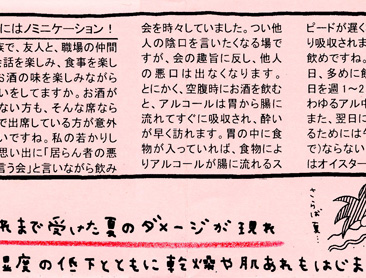 にはノミニケーション！
族で、友人と、職場の仲間
会話を楽しみ、食事を楽し
お酒の味を楽しみながら
いをしてますか。お酒が
ない方も、そんな席なら
で出席している方が意外
いですね。私の若かりし
思い出に「居らん者の悪
言う会」と言いながら飲み
会を時々していました。つい他
人の陰口を言いたくなる場で
すが、会の趣旨に反し、他人
の悪口は出なくなります。
とにかく、空腹時にお酒を飲む
と、アルコールは胃から腸に
流れてすぐに吸収され、酔い
が早く訪れます。胃の中に食
物が入っていれば、食物によ
りアルコールが腸に流れるス
ピードが遅く
り吸収されま
飲めですね。
日、多めに飲
日を週1〜2
わゆるアル中
また、翌日に
るためには午
で)ならない
はオイスター
さらば夏…
れまで受けた夏のダメージが現れ
湿度の低下とともに乾燥や肌あれもはじま